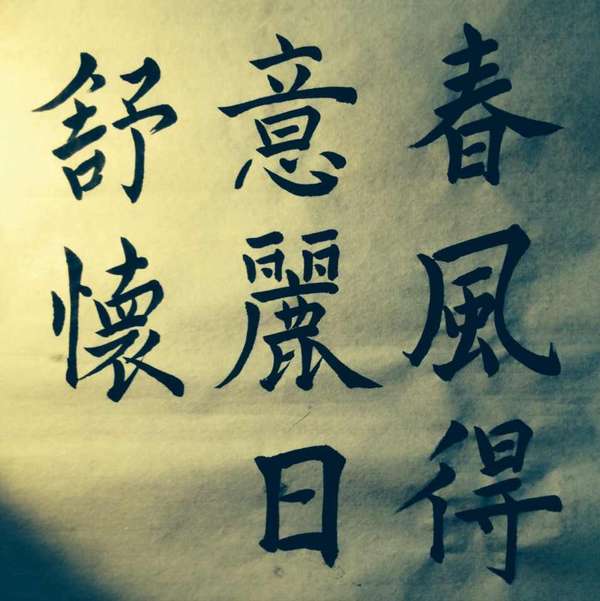 春風得
意麗日
舒懷